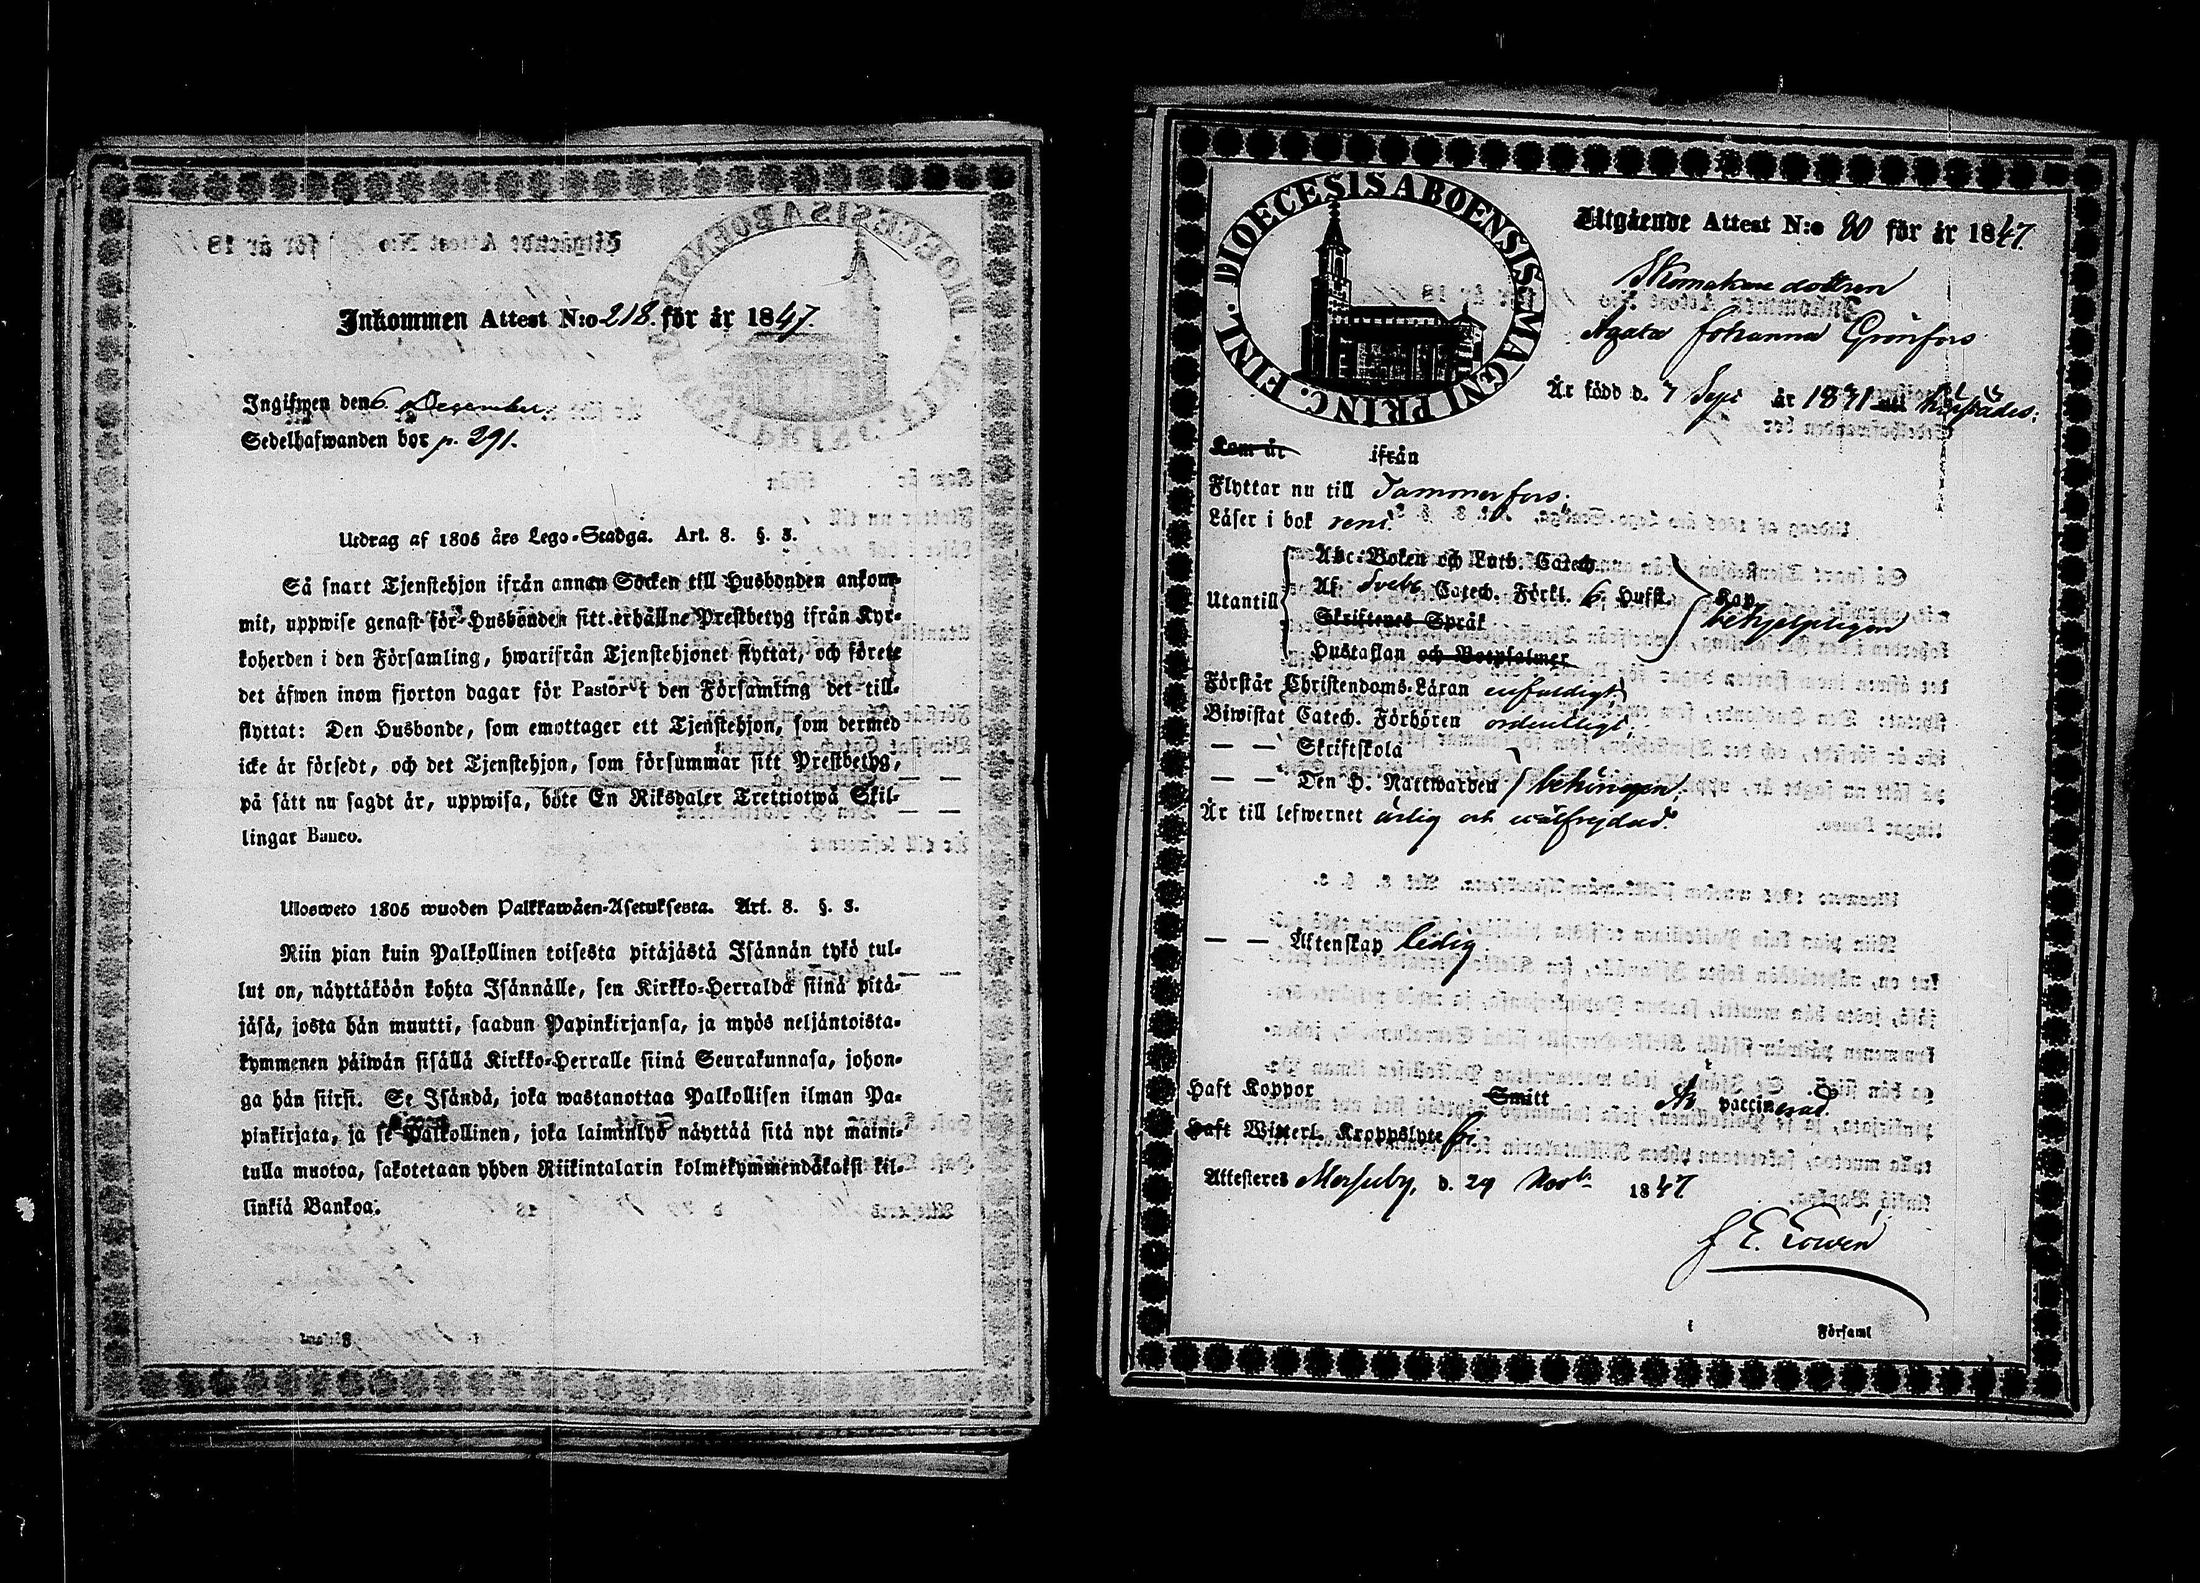 Inkommen Attest N:o 218. för år 1847.
Ingifwen den 6. December.
Sedelhafwanden bor p. 291.
Utdrag af 1805 års Lego-Stadga. Art. 8. §. 3.
Så snart Tjenstehjon ifrån annan Socken till Husbonden ankom-
mit, uppwise genast för Husbonden sitt erhållne Prestbetyg ifrån Kyr-
koherden i den Församling, hwarifrån Tjenstehjonet flyttat, och förete
det äfwen inom fjorton dagar för Pastor i den Församling det till-
flyttat: Den Husbonde, som emottager ett Tjenstehjon, som dermed
icke är försedt, och det Tjenstehjon, som försummar sitt Prestbetyg,
på sätt nu sagdt är, uppwisa, böte En Riksdaler Trettiotwå Skil-
lingar Banco.
Ulosweto 1805 wuoden Palkkawäen-Asetuksesta. Art. 8. §. 3.
Niin pian kuin Palkollinen toisesta pitäjästä Isännän tykö tul-
lut on, näyttäköön kohta Isännälle, sen Kirkko-Herralda siinä pitä-
jäsä, josta hän muutti, saadun Papinkirjansa, ja myös neljäntoista-
kymmenen päiwän sisällä Kirkko-Herralle siinä Seurakunnasa, johon-
ga hän siirsi. Se Isändä, joka wastanottaa Palkollisen ilman Pa-
pinkirjata, ja se Palkollinen, joka laiminlyö näyttää sitä nyt maini-
tulla muotoa, sakotetaan yhden Riikintalarin kolmekymmendäkaksi kil-
linkiä Bankoa.
DIOECESIS ABOENSIS MAGNI PRINC. FINL.
Utgående Attest N:o 80 för år 1847.
Skomakare dottren
Agata Johanna Grönfors
Är född d. 7 Sept år 1831
Kom år ifrån
Flyttar nu till Tammerfors.
Läser i bok rent.
Abc-Boken och Luth. Catech.
Utantill Af Sveb. Catech. Förkl. 6. Hufst. Kap.
Skriftenes Språk behjelpligen
Hustaflan och Botpsalmer
Förstår Christendoms-Läran enfaldigt,
Biwistat Catech. Förhören ordentligt,
— — Skriftskola
— — Den H. Nattwarden behörigen,
Är till lefwernet ärlig och wälfrejdad.
— — Äktenskap ledig
Haft Koppor Smitt Är vaccinerad.
Haft Winerl. Kroppslyte
Attesteres Merijerby, d. 29 Novb. 1847
i Församl